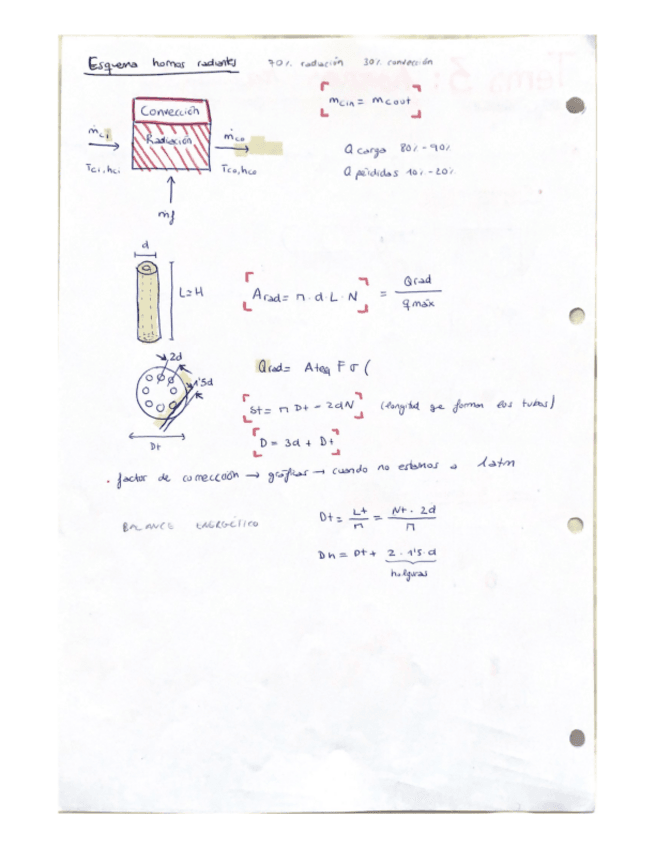 Esquema hornos radiantes 70% radiación 30% convección
Convección
Radiación
ṁci
Tci, hci
ṁco
Tco, hco
ṁf
mcin = mcout
Q carga 80% - 90%
Q pérdidas 10% - 20%
d
L=H
Arad = π · d · L · N = Qrad / qmáx
2d
1'5d
Dt
Qrad = Ateq F σ (
St = π Dt = 2dN (longitud que forman los tubos)
D = 3d + Dt
· factor de corrección → gráficas → cuando no estamos a 1 atm
BALANCE ENERGÉTICO
Dt = Lt / π = Nt · 2d / π
Dh = Dt + 2 · 1'5 · d
holguras